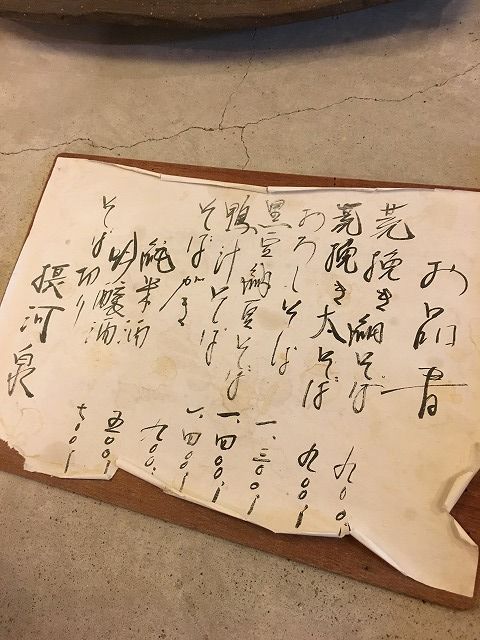 お品書
荒挽き細そば 九〇〇
荒挽き太そば 九〇〇
おろしそば 一、三〇〇
黒豆納豆そば 一、四〇〇
鴨汁そば 一、四〇〇
そばがき 九〇〇
純米酒 五〇〇
吟醸酒 七〇〇
そば切り
摂河泉